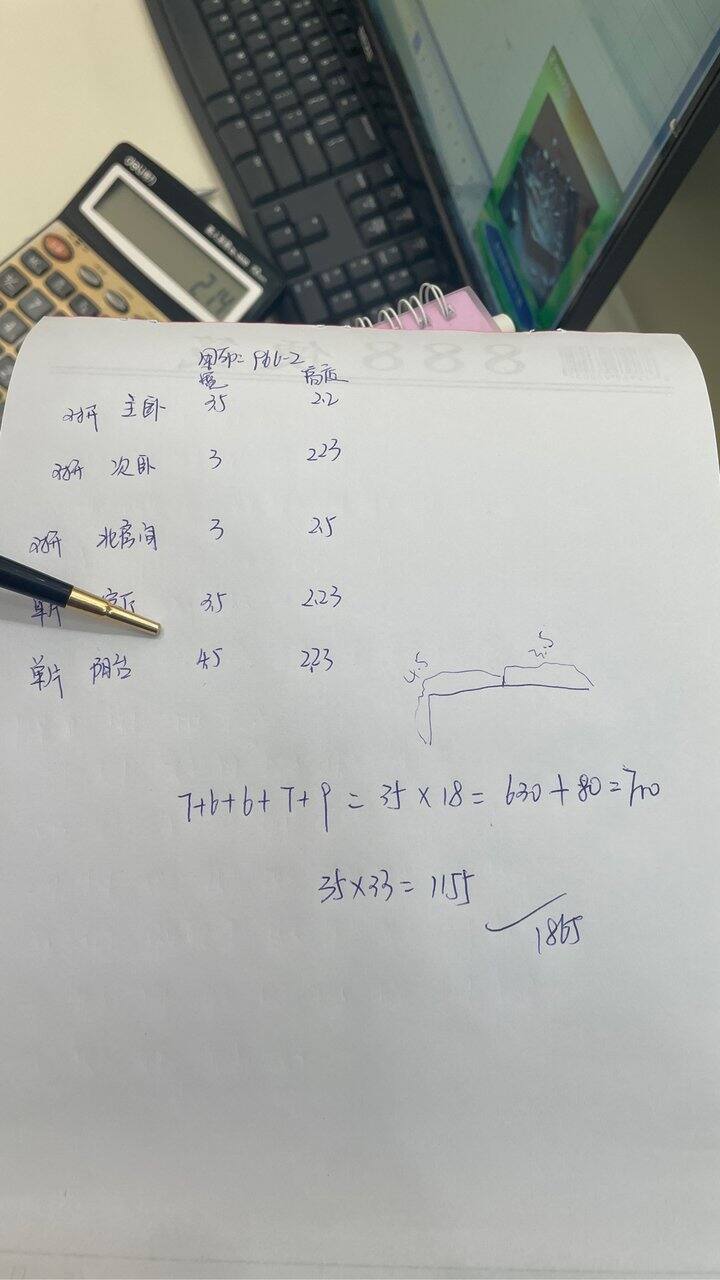 deli
214
888
宽 高度
对开 主卧 3.5 2.2
对开 次卧 3 2.23
对开 北房间 3 2.5
单片 客厅 3.5 2.23
单片 阳台 4.5 2.23
4.5
3.5
7+6+6+7+9=35×18=630+80=710
35×33=1155
1865